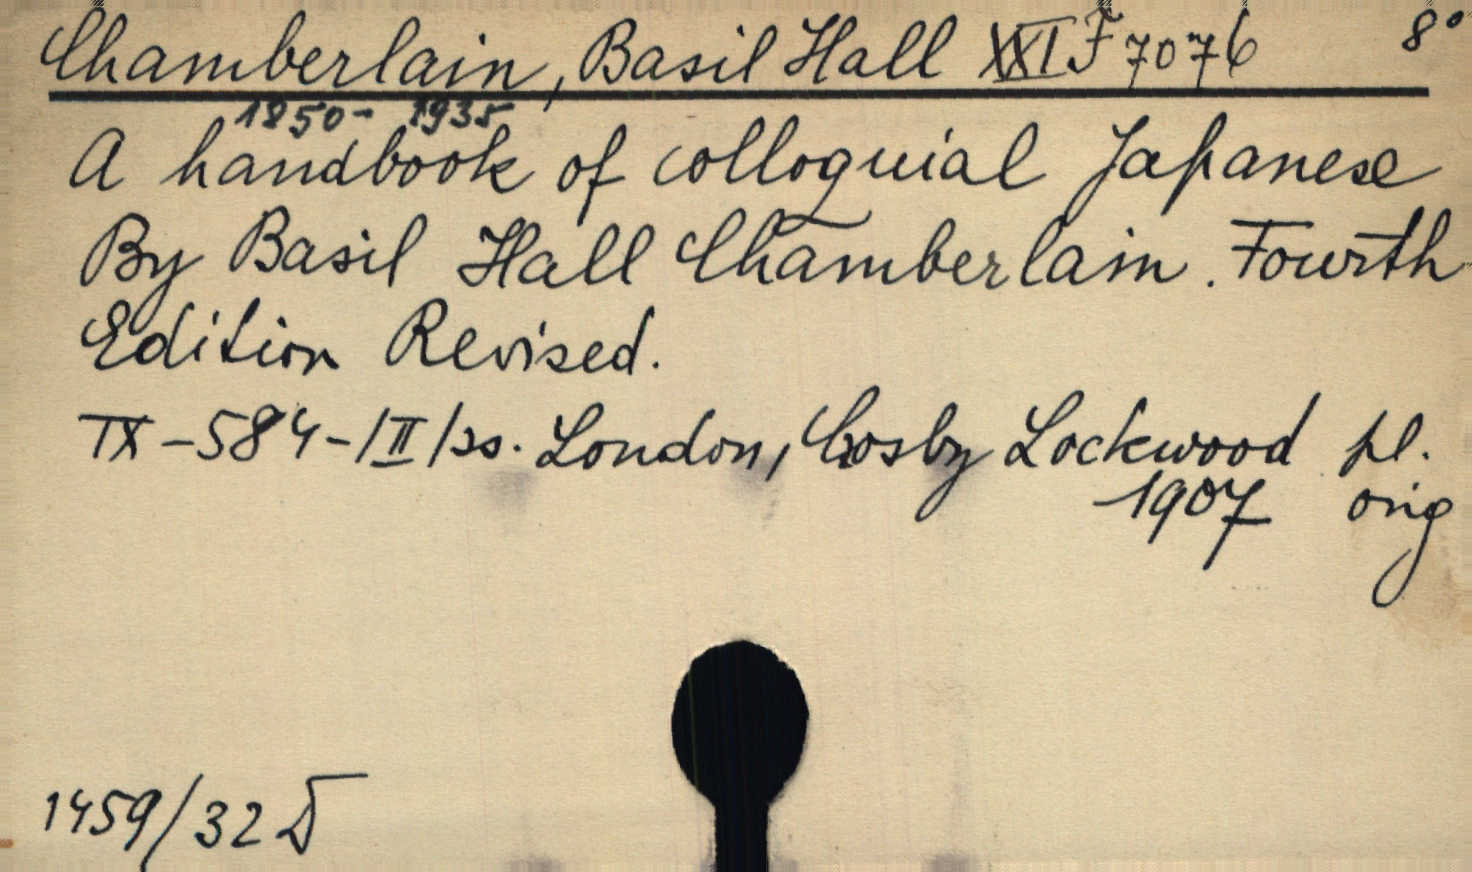 Chamberlain, Basil Hall XXI F 7076 8°
1850- 1935
A handbook of colloquial Japanese
By Basil Hall Chamberlain. Fourth
Edition Revised.
IX-584-/II/ss. London, Crosby Lockwood pl.
1907 orig
1459/32